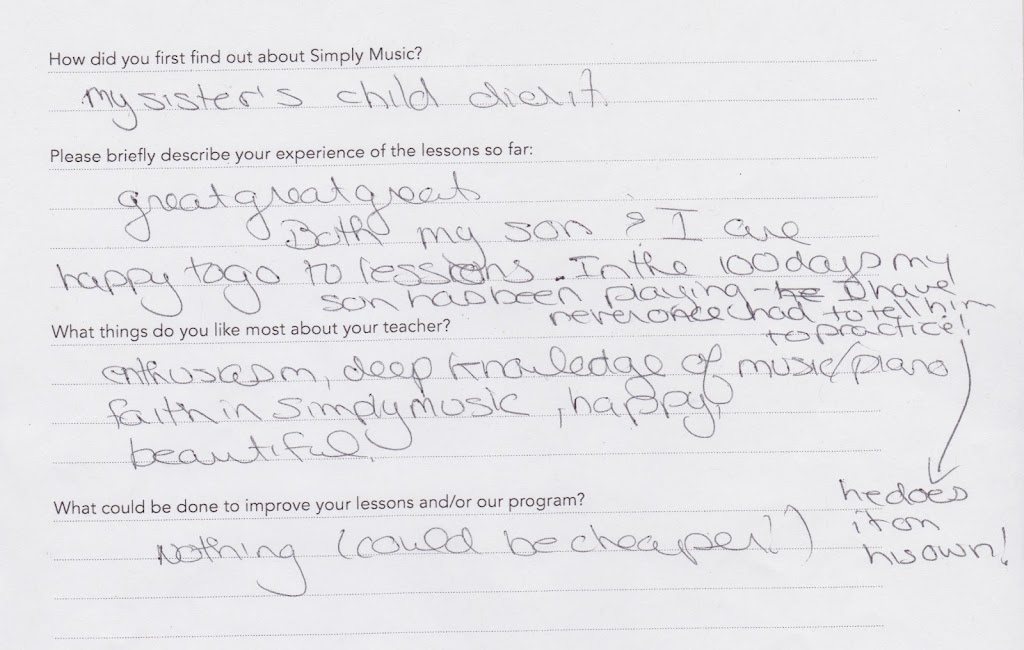 How did you first find out about Simply Music?
my sister's child did it.
Please briefly describe your experience of the lessons so far:
great great great
Both my son & I are
happy to go to lessons. In the 100 days my
son has been playing - he I have
never once had to tell him
to practice!
What things do you like most about your teacher?
enthusiasm, deep knowledge of music/piano
faith in simply music, happy,
beautiful.
What could be done to improve your lessons and/or our program?
he does
it on
his own!
Nothing (could be cheaper!)